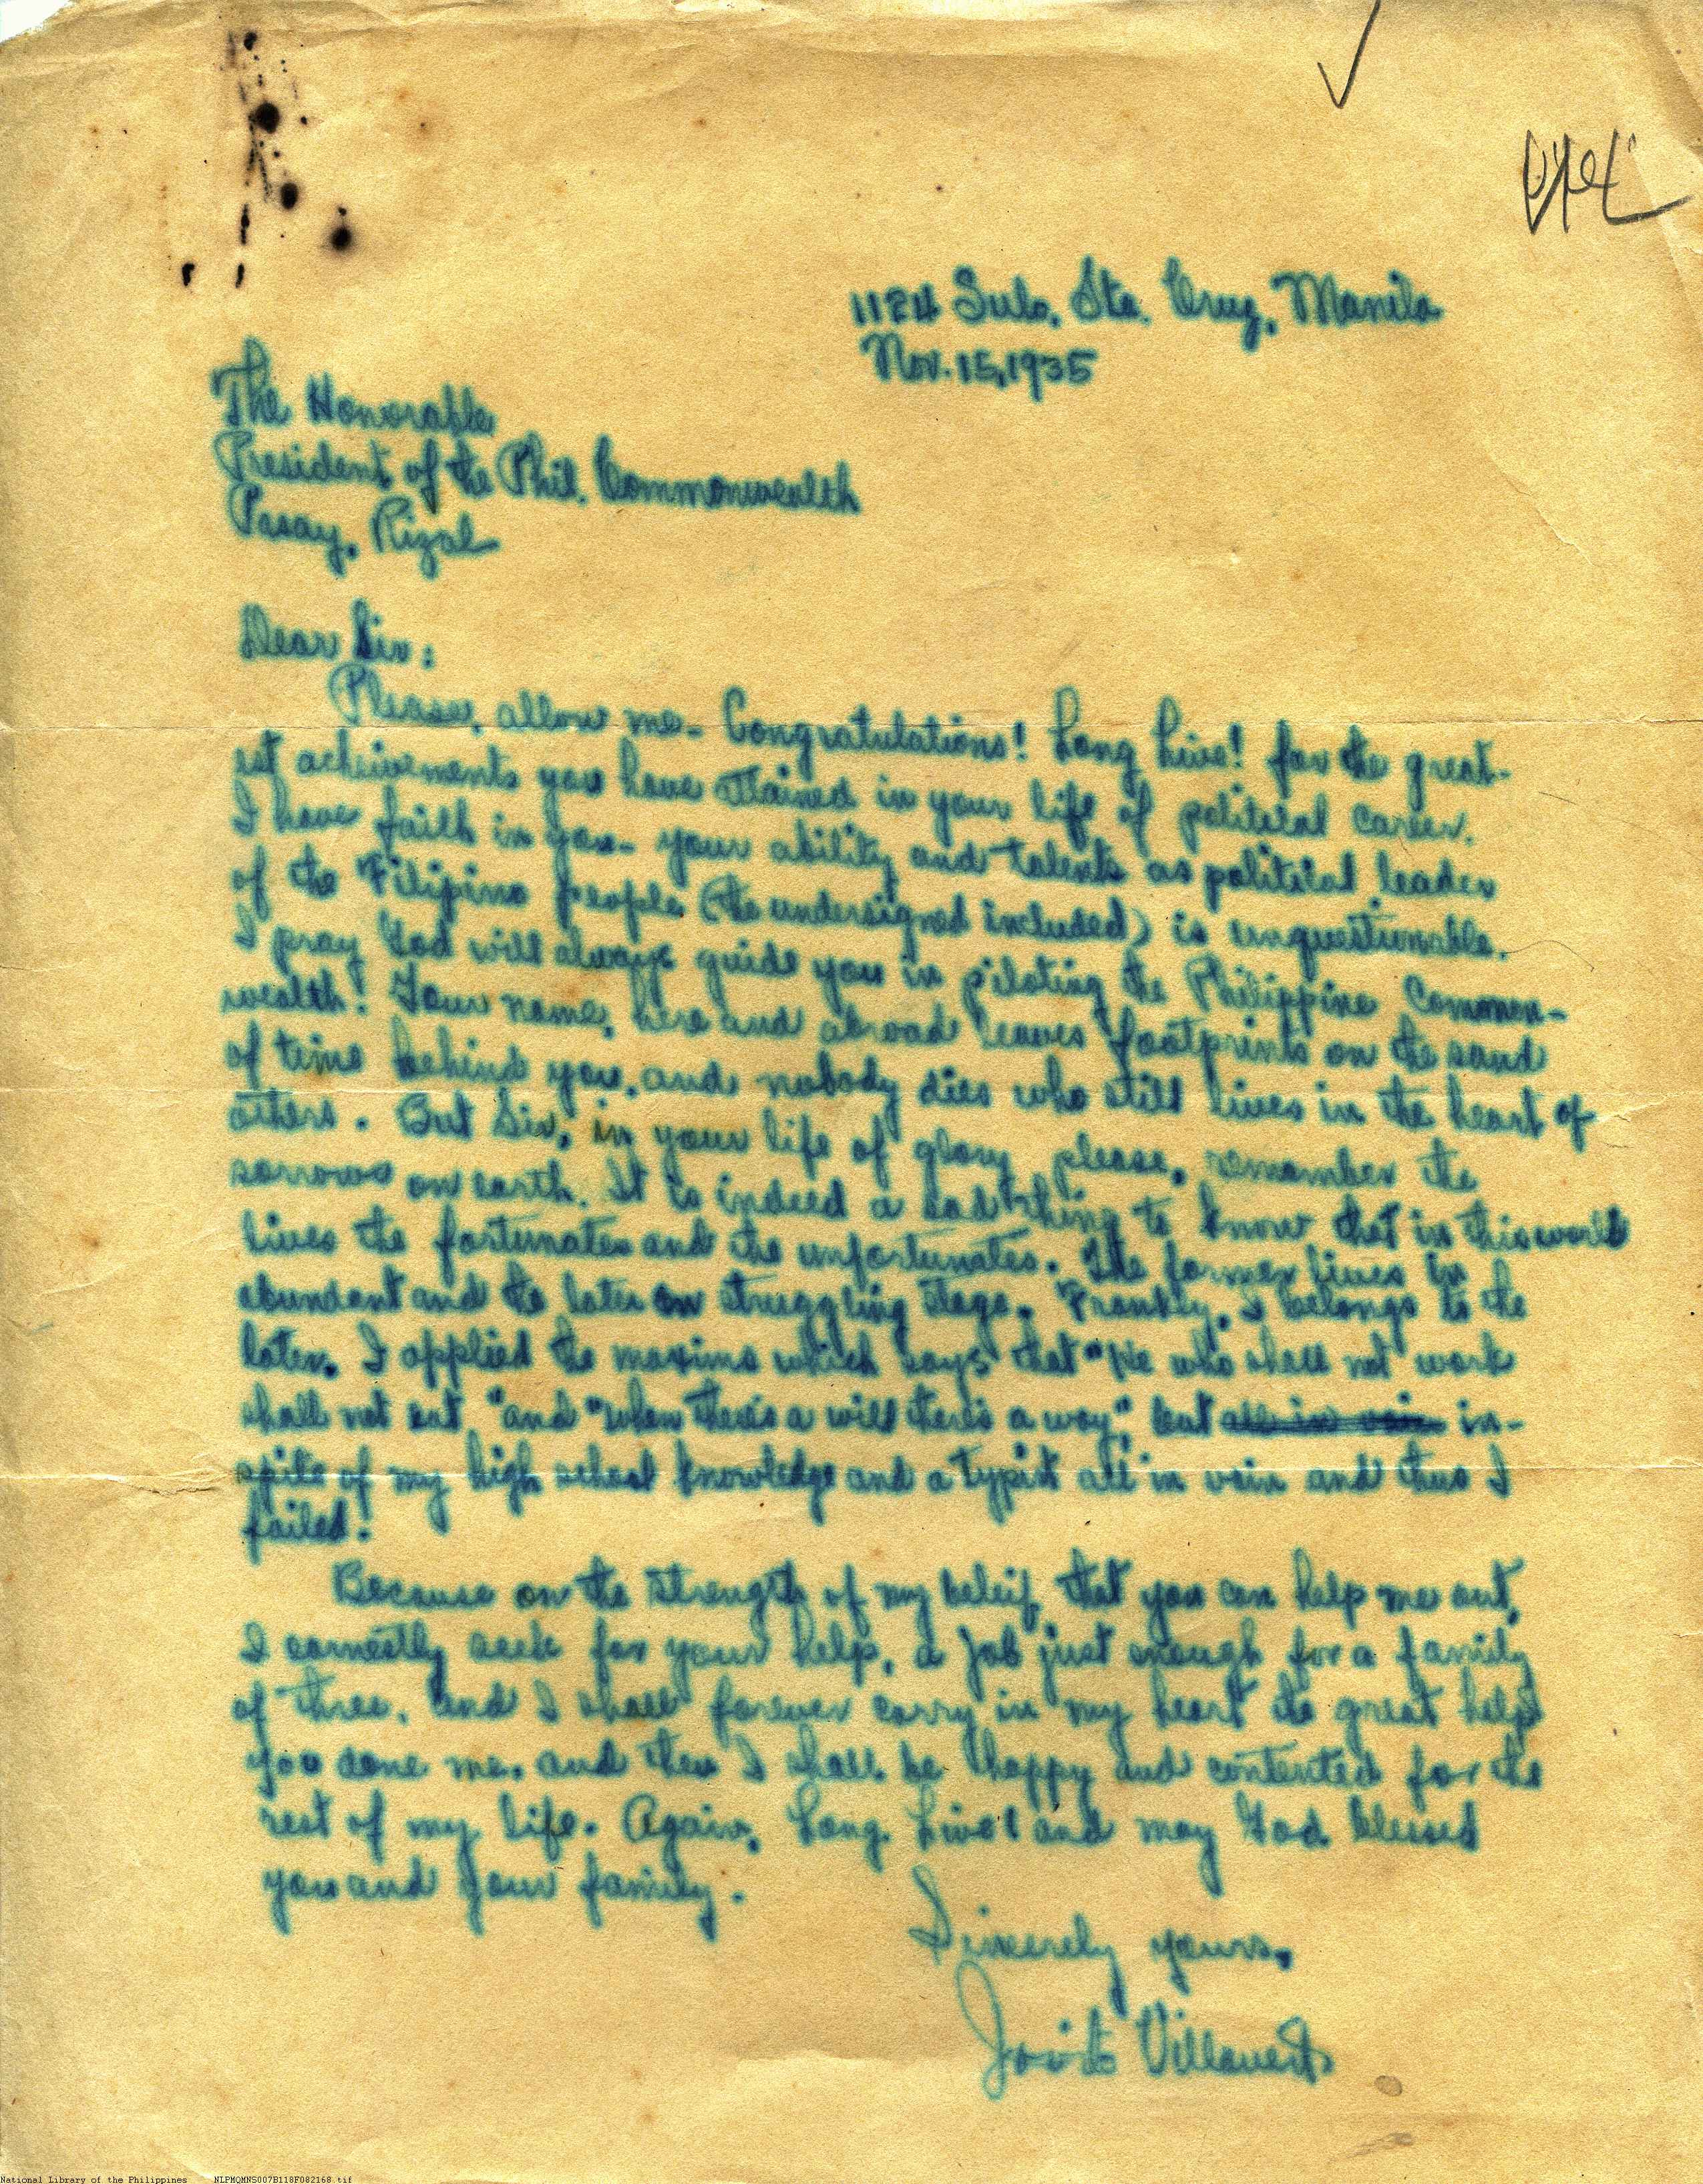 1124 Sulo, Sta. Cruz, Manila
Nov. 15, 1935
The Honorable
President of the Phil. Commonwealth
Pasay, Rizal
Dear Sir:
Please, allow me - Congratulations! Long Live! for the great-
est acheivements you have attained in your life of political career.
I have faith in you - your ability and talents as political leader
of the Filipino people (the undersigned included) is unquestionable.
I pray God will always guide you in piloting the Philippine Common-
wealth! Your name, here and abroad leaves footprints on the sand
of time behind you, and nobody dies who still lives in the heart of
others. But Sir, in your life of glory please, remember the
sorrows on earth. It is indeed a sad thing to know that in this world
lives the fortunates and the unfortunates. The former lives in
abundant and the later on struggling stage. Frankly, I belongs to the
later. I applied the maxims which says that "He who shall not work
shall not eat" and "when there's a will there's a way", but all in vain in-
spite of my high school knowledge and a typist all in vain and thus I
failed!
Because on the strength of my beleif that you can help me out,
I earnestly seek for your help, a job just enough for a family
of three. And I shall forever carry in my heart the great help
you done me, and then I shall be happy and contented for the
rest of my life. Again, Long Live! and may God blessed
you and your family.
Sincerely yours,
Jovito
National Library of the Philippines NLPMQMNS007B118F082168.tif